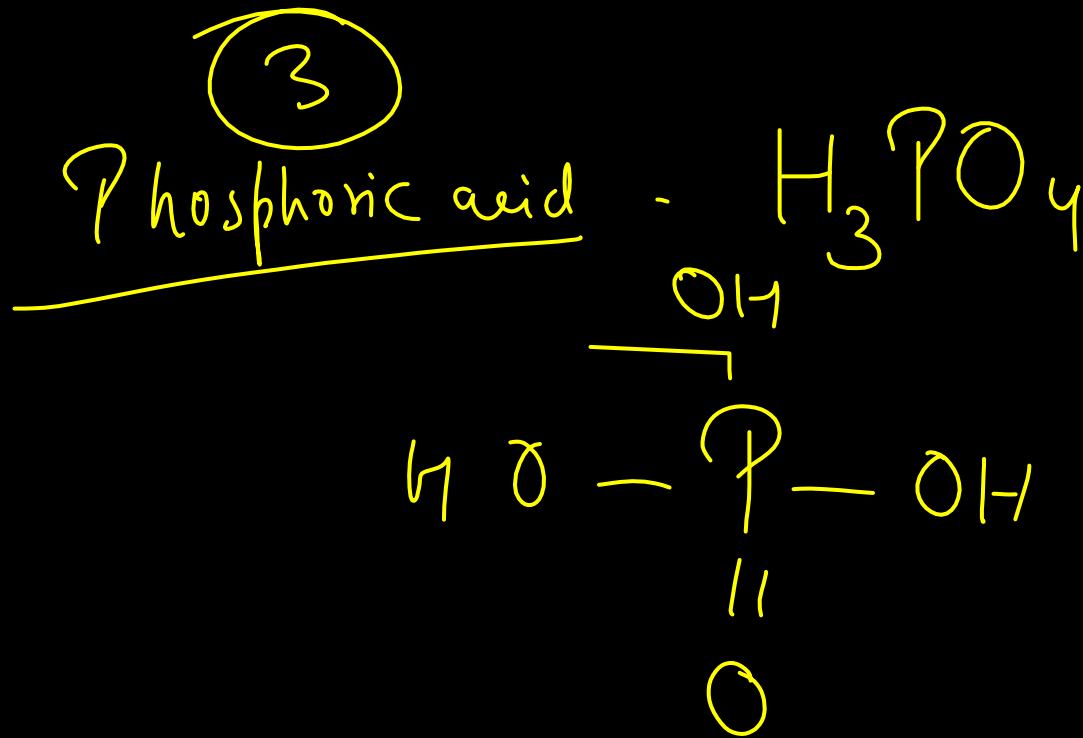 3
Phosphoric acid - H₃PO₄
OH
HO — P — OH
||
O